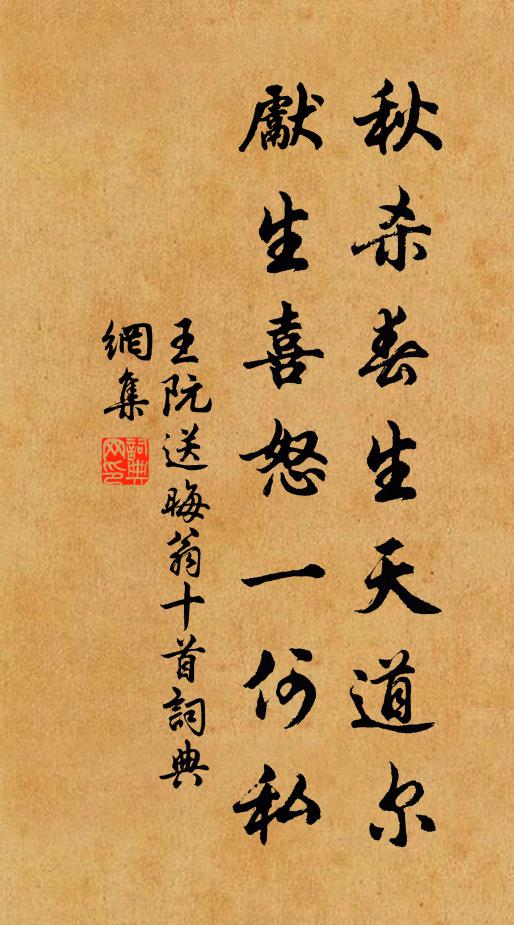 秋杀春生天道尔
獻生喜怒一何私
王阮送晦翁十首詞典
網集
詞典
网印